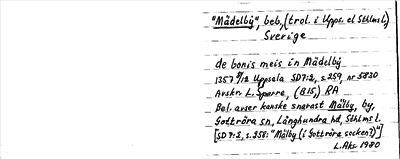 "Mådelbÿ", beb., (trol. i Upps. el Sthlms l.)
Sverige
de bonis meis in Mådelbÿ
1357 9/12 Uppsala SD7:2, s.259, nr 5830
Avskr. L. Sparre, (B15,) RA
Bel. avser kanske snarast Målby, by,
Gottröra sn, Långhundra hd, Sthlms l.
[SD 7:2, s.258: "Målby (i Gottröra socken?)"]
L.Aks. 1980